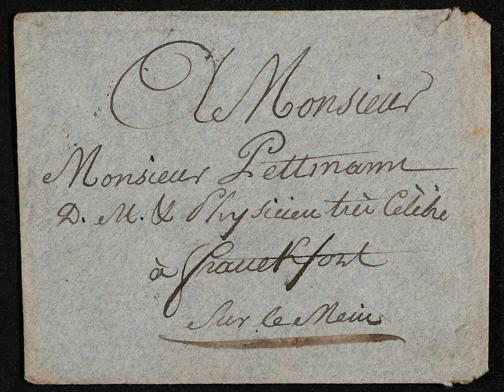 A Monsieur
Monsieur Pettmann
D. M. & Physicien très Célèbre
à Franckfort
Sur le Mein